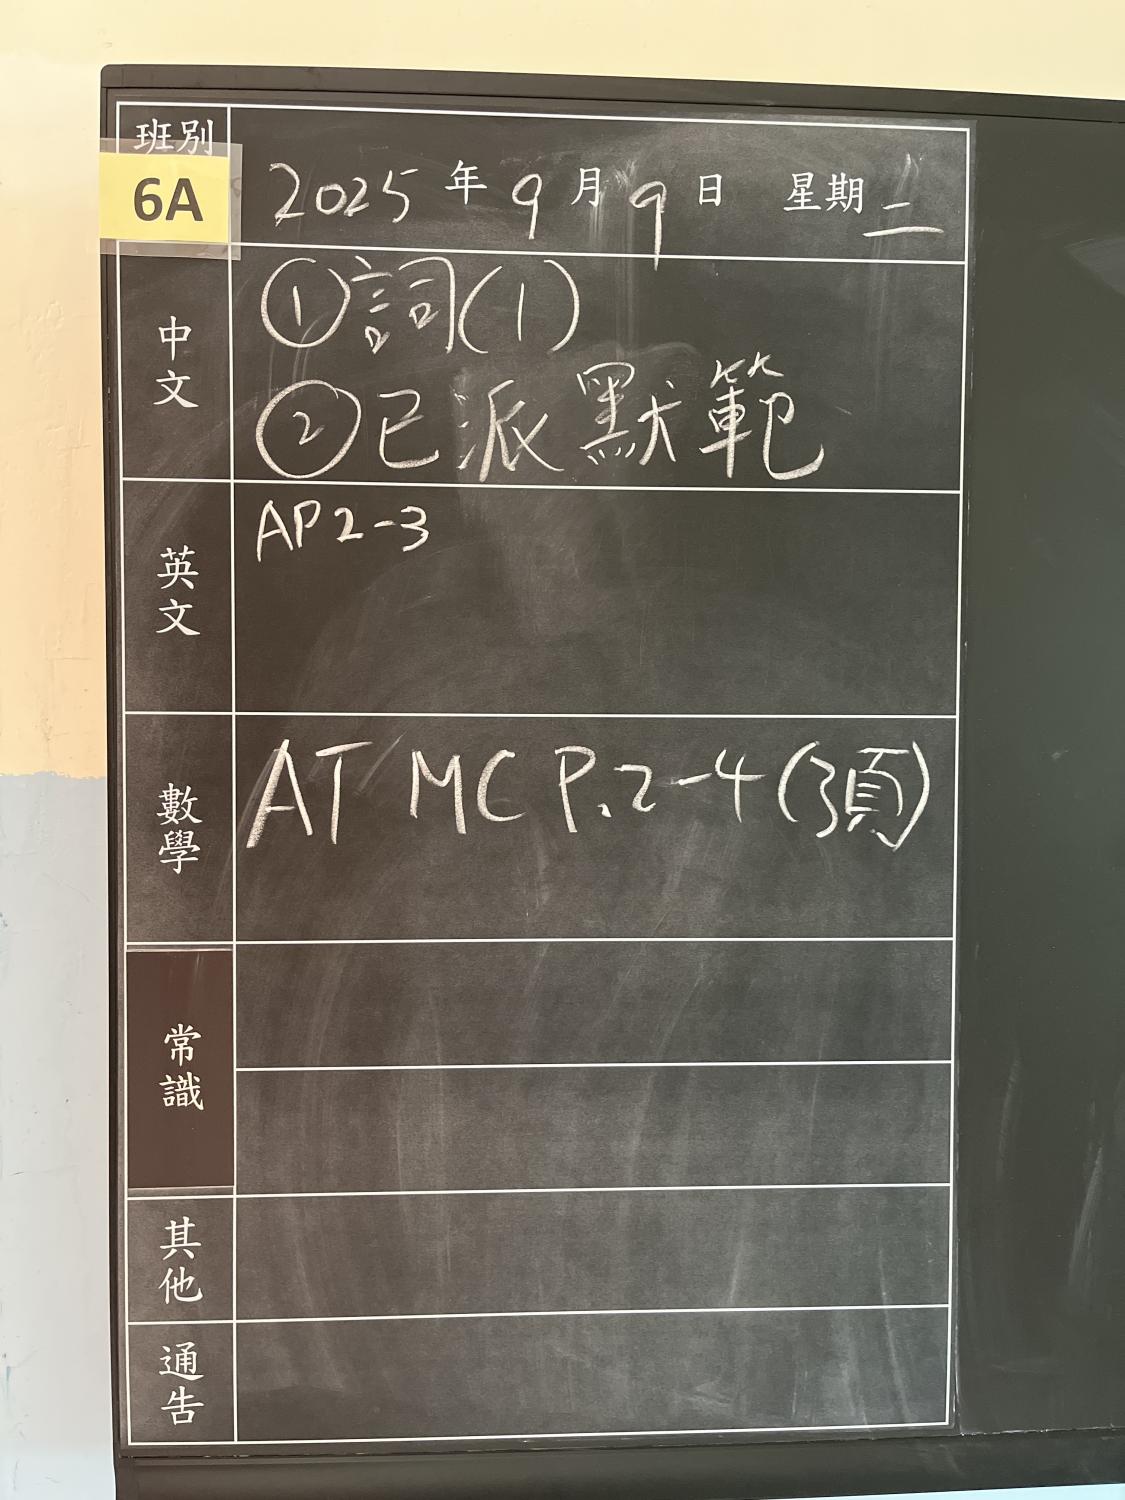 班別
6A
2025年9月9日 星期二
中文
①詞(1)
②已派默範
英文
AP2-3
數學
AT MC P.2-4(3頁)
常識
其他
通告